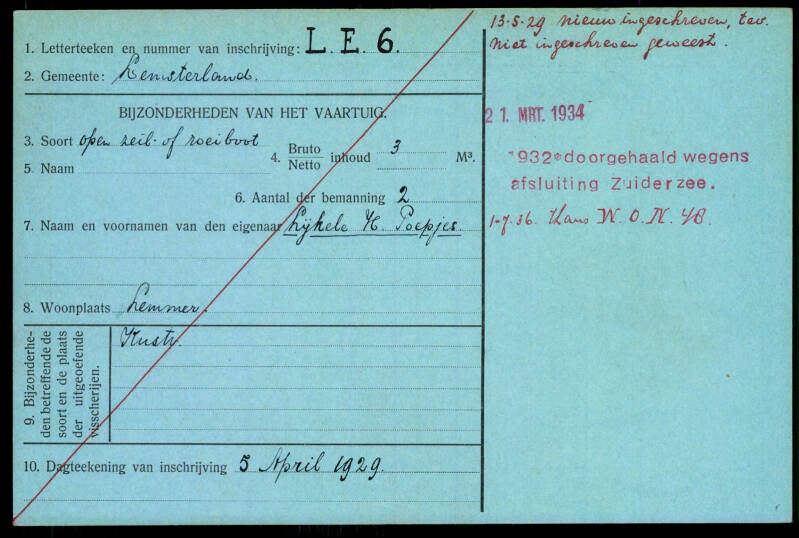 1. Letterteeken en nummer van inschrijving: L. E. 6.
2. Gemeente: Lemsterland.
BIJZONDERHEDEN VAN HET VAARTUIG.
3. Soort open zeil- of roeiboot
4. Bruto Netto inhoud 3 M³.
5. Naam
6. Aantal der bemanning 2
7. Naam en voornamen van den eigenaar Lijkele H. Poepjes.
8. Woonplaats Lemmer.
9. Bijzonderhe-
den betreffende de
soort en de plaats
der uitgeoefende
visscherijen.
Kustv.
10. Dagteekening van inschrijving 5 April 1929.
13-5-29 nieuw ingeschreven, tev.
niet ingeschreven geweest.
21. MRT. 1934
1932 doorgehaald wegens
afsluiting Zuiderzee.
1-7.36. thans W. O. N. 48.